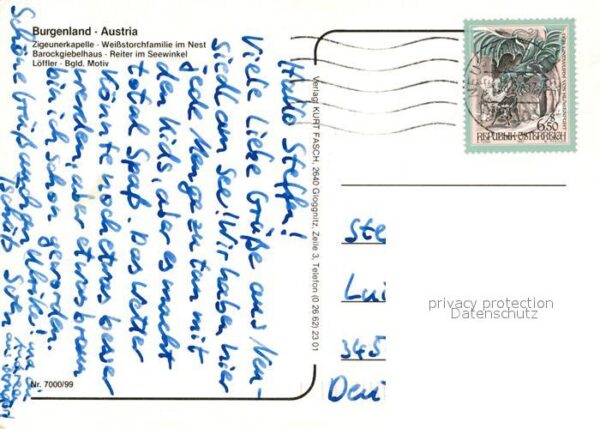 Burgenland · Austria
Zigeunerkapelle · Weißstorchfamilie im Nest
Barockgiebelhaus · Reiter im Seewinkel
Löffler · Bgld. Motiv
Hallo Steffen!
Viele Liebe Grüße aus Neu-
siedl am See! Wir haben hier
jede Menge zu tun mit
den Kids, aber es macht
total Spaß. Das Wetter
könnte noch etwas besser
werden, aber etwas braun
bin ich schon geworden.
Schöne Grüße auch an Ulrike!
Tschüß
Nr. 7000/99
Verlag: KURT FASCH, 2640 Gloggnitz, Zeile 3, Telefon (0 26 62) 23 01
6.50
REPUBLIK ÖSTERREICH
Ste
Lui
345
privacy protection
Datenschutz